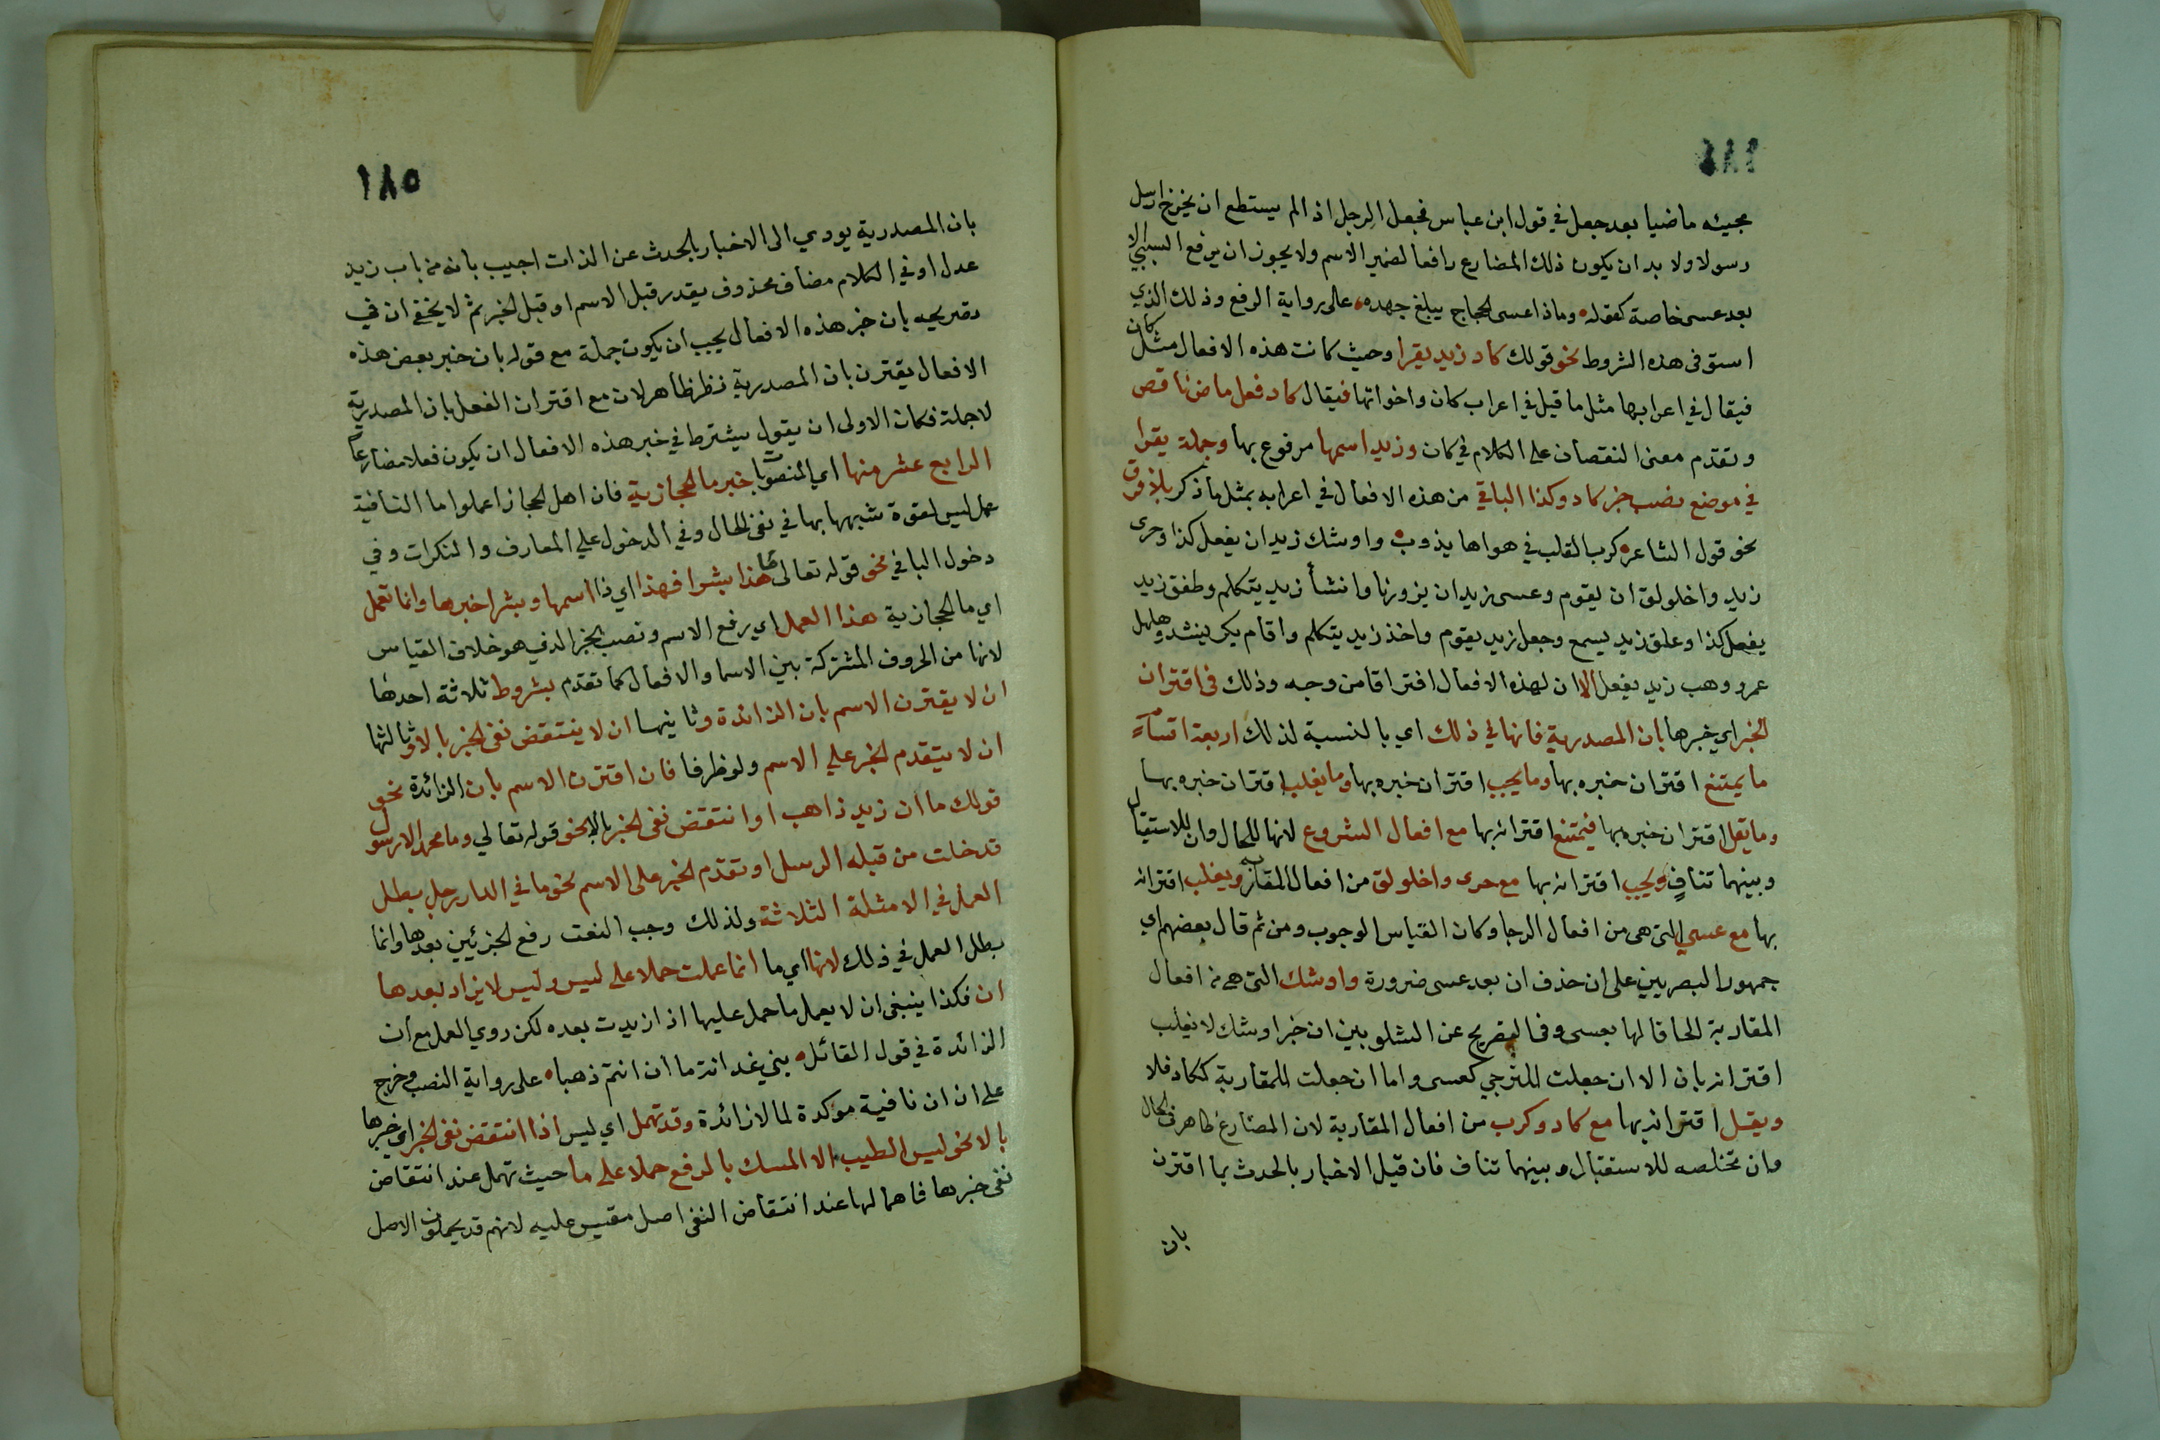 ١٨٤
مجيئه ماضيا بعد جعل في قول ابن عباس فجعل الرجل اذا لم يستطع ان يخرج ارسل
رسولا ولا بد ان يكون ذلك المضارع رافعا لضمير الاسم ولا يجوز ان يرفع السببي الا
بعد عسى خاصة كقوله وماذا عسى الحجاج يبلغ جهده على رواية الرفع وذلك الذي
استوفى هذه الشروط نحو قولك كاد زيد يقرا وحيث كانت هذه الافعال مثل كان
فيقال في اعرابها مثل ما قيل في اعراب كان واخواتها فيقال كاد فعل ماض ناقص
وتقدم معنى النقصان على الكلام في كان وزيد اسمها مرفوع بها وجملة يقرا
في موضع نصب خبر كاد وكذا الباقي من هذه الافعال في اعرابه بمثل ما ذكر بلا فرق
نحو قول الشاعر كرب القلب في هواها يذوب واوشك زيد ان يفعل كذا وحرى
زيد واخلولق ان يقوم وعسى زيد ان يزورنا وانشأ زيد يتكلم وطفق زيد
يفعل كذا وعلق زيد يسمع وجعل زيد يقوم واخذ زيد يتكلم واقام بكر ينشد وهلهل
عمرو وهب زيد يفعل الا ان لهذه الافعال افتراقا من وجه وذلك في اقتران
الخبر اي خبرها بان المصدرية فانها في ذلك اي بالنسبة لذلك اربعة اقسام
ما يمتنع اقتران خبره بها وما يجب اقتران خبره بها وما يغلب اقتران خبره بها
وما يقل اقتران خبره بها فيمتنع اقترانه بها مع افعال الشروع لانها للحال وان للاستقبال
وبينهما تناف ويجب اقترانه بها مع حرى واخلولق من افعال المقاربة ويغلب اقترانه
بها مع عسى التي هي من افعال الرجا وكان القياس الوجوب ومن ثم قال بعضهم اي
جمهور البصريين على ان حذف ان بعد عسى ضرورة واوشك التي هي من افعال
المقاربة الحاقا لها بعسى وفي التصريح عن الشلوبين ان خبر اوشك لا يغلب
اقترانه بان الا ان جعلت للترجي كعسى واما ان جعلت للمقاربة ككاد فلا
ويقل اقترانه بها مع كاد وكرب من افعال المقاربة لان المضارع ظاهر في الحال
وان تخلصه للاستقبال وبينهما تناف فان قيل الاخبار بالحدث بما اقترن
بان
١٨٥
بان المصدرية يودي الى الاخبار بالحدث عن الذات اجيب بانه من باب زيد
عدل او في الكلام مضاف محذوف يقدر قبل الاسم او قبل الخبر ثم لا يخفى ان في
تصريحه بان خبر هذه الافعال يجب ان يكون جملة مع قوله بان خبر بعض هذه
الافعال يقترن بان المصدرية نظر ظاهر لان مع اقتران الفعل بان المصدرية
لا جملة فكان الاولى ان يقول يشترط في خبر هذه الافعال ان يكون فعلا مضارعا
الرابع عشر منها اي المنصوبات خبر ما الحجازية فان اهل الحجاز اعملوا ما النافية
عمل ليس لقوة شبهها بها في نفي الحال وفي الدخول على المعارف والنكرات وفي
دخول البا في نحو قوله تعالى ما هذا بشرا فهذا اي ذا اسمها وبشرا خبرها وانما تعمل
اي ما الحجازية هذا العمل اي رفع الاسم ونصب الخبر الذي هو خلاف القياس
لانها من الحروف المشتركة بين الاسما والافعال كما تقدم بشروط ثلاثة احدها
ان لا يقترن الاسم بان الزائدة وثانيها ان لا ينتقض نفي الخبر بالا وثالثها
ان لا يتقدم الخبر على الاسم ولو ظرفا فان اقترن الاسم بان الزائدة نحو
قولك ما ان زيد ذاهب او انتقض نفي الخبر بالا نحو قوله تعالي وما محمد الا رسول
قد خلت من قبله الرسل او تقدم الخبر على الاسم نحو ما في الدار رجل بطل
العمل في الامثلة الثلاثة ولذلك وجب النعت رفع الجزئين بعدها وانما
بطل العمل في ذلك لانها اي ما انما عملت حملا على ليس وليس لا يزاد بعدها
ان فكذا ينبغي ان لا يعمل ما حمل عليها اذا زيدت بعده لكن روي العمل مع ان
الزائدة في قول القائل بني غدانة ما ان انتم ذهبا على رواية النصب وخرج
على ان ان نافية موكدة لما لا زائدة وقد تهمل اي ليس اذا انتقض نفي الخبر اي خبرها
بالا نحو ليس الطيب الا المسك بالرفع حملا على ما حيث تهمل عند انتقاض
نفي خبرها فاهمالها عند انتقاض النفي اصل مقيس عليه لانهم قد يحملون الاصل